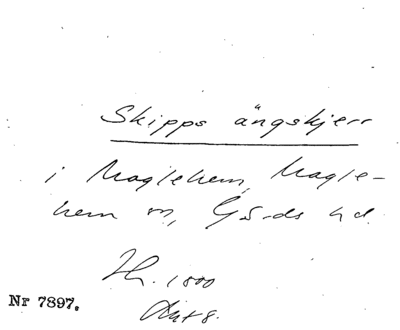 Skipps ängskjerr
i Maglehem, Magle-
hem sn, Gärds hd.
Th. 1800
Akt 8.
Nr 7897.